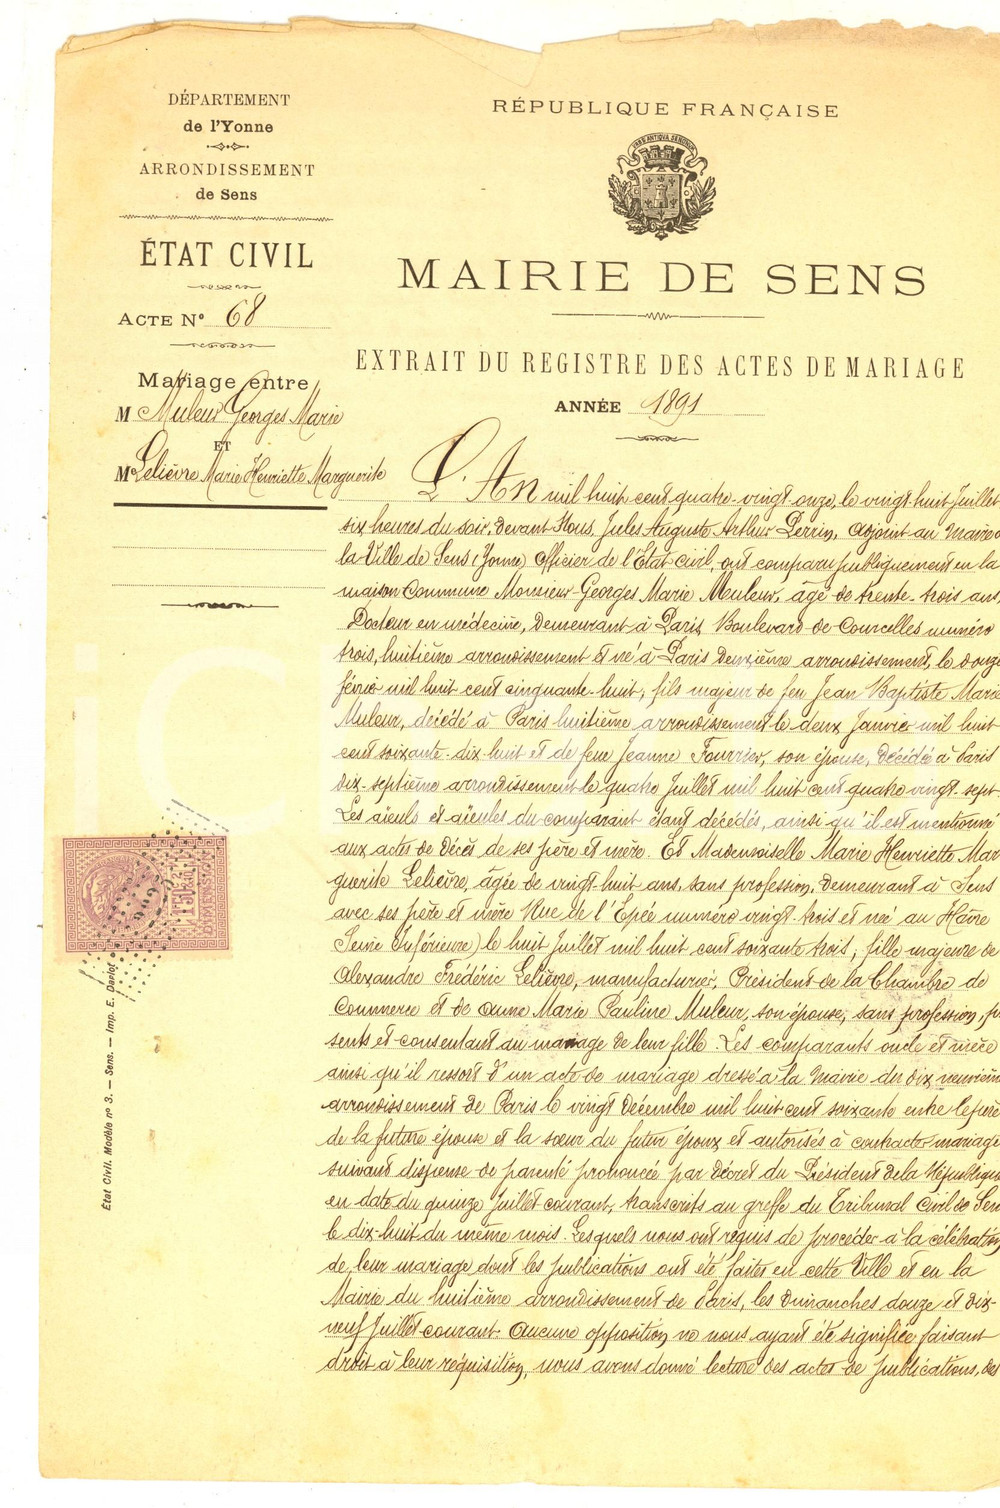 DÉPARTEMENT
de l'Yonne
ARRONDISSEMENT
de Sens
ÉTAT CIVIL
ACTE N° 68
Mariage entre
M Muleur Georges Marie
ET
Mlle Lelièvre Marie Henriette Marguerite
RÉPUBLIQUE FRANÇAISE
MAIRIE DE SENS
EXTRAIT DU REGISTRE DES ACTES DE MARIAGE
ANNÉE 1891
L'An mil huit cent quatre-vingt onze, le vingt huit Juillet
six heures du soir, devant Nous, Jules Auguste Arthur Perrin, adjoint au Maire de
la Ville de Sens (Yonne) Officier de l'État civil, ont comparu publiquement en la
maison Commune Monsieur Georges Marie Muleur, âgé de trente-trois ans,
Docteur en médecine, demeurant à Paris, Boulevard de Courcelles numéro
trois, huitième arrondissement et né à Paris deuxième arrondissement, le douze
février mil huit cent cinquante-huit, fils majeur de feu Jean Baptiste Marie
Muleur, décédé à Paris huitième arrondissement le deux Janvier mil huit
cent soixante-dix-huit et de feue Jeanne Fourrier, son épouse, décédée à Paris
dix-septième arrondissement le quatre Juillet mil huit cent quatre vingt-sept.
Les aïeuls et aïeules du comparant étant décédés, ainsi qu'il est mentionné
aux actes de décès de ses père et mère. Et Mademoiselle Marie Henriette Mar
guerite Lelièvre, âgée de vingt-huit ans, sans profession, demeurant à Sens
avec ses père et mère Rue de l'Epée numéro vingt-trois et née au Hâvre
Seine Inférieure) le huit Juillet mil huit cent soixante trois; fille majeure de
Alexandre Frédéric Lelièvre, manufacturier, Président de la Chambre de
Commerce et de Anne Marie Pauline Muleur, son épouse, sans profession, p
sents et consentant au mariage de leur fille. Les comparants oncle et nièce
ainsi qu'il ressort d'un acte de mariage dressé à la Mairie du dix neuvième
arrondissement de Paris le vingt décembre mil huit cent soixante entre le père
de la future épouse et la sœur du futur époux et autorisés à contracter mariage
suivant dispense de parenté prononcée par décret du Président de la République
en date du quinze Juillet courant, transcrits au greffe du Tribunal Civil de Sens
le dix-huit du même mois. Lesquels nous ont requis de procéder à la célébration
de leur mariage dont les publications ont été faites en cette Ville et en la
Mairie du huitième arrondissement de Paris, les dimanches douze et dix-
neuf Juillet courant. Aucune opposition ne nous ayant été signifiée faisant
droit à leur réquisition, nous avons donné lecture des actes de publications, des
État Civil. Modèle n° 3. — Sens. — Imp. E. Duniot